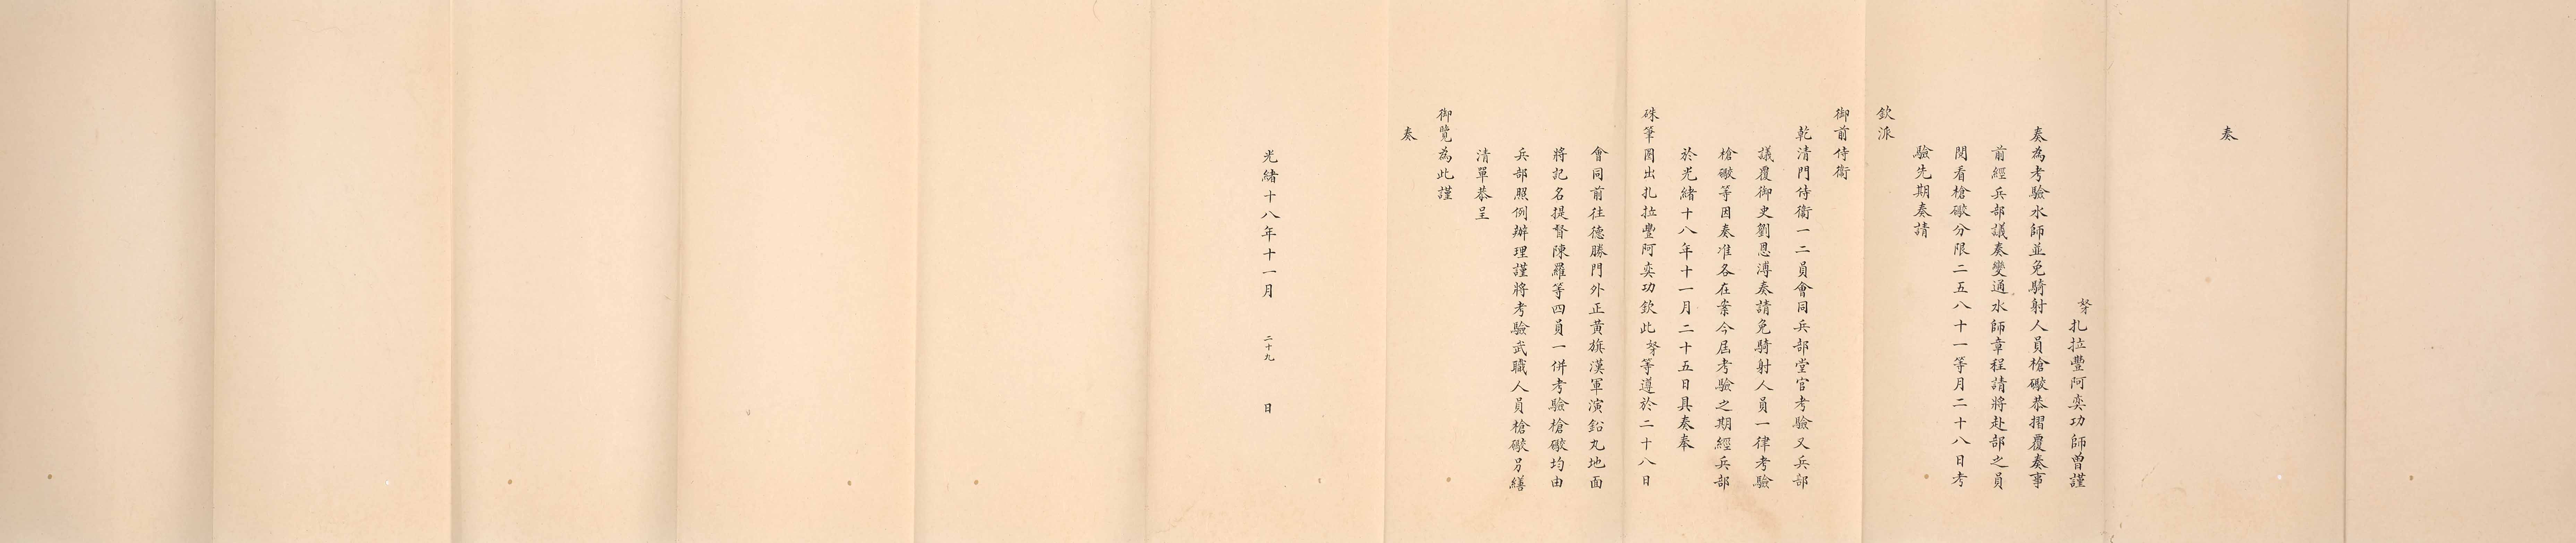 奏
奴才扎拉豐阿奕功師曾謹
奏為考驗水師並免騎射人員槍礮恭摺覆奏事
前經兵部議奏變通水師章程請將赴部之員
閱看槍礮分限二五八十一等月二十八日考
驗先期奏請
欽派
御前侍衛
乾清門侍衛一二員會同兵部堂官考驗又兵部
議覆御史劉恩溥奏請免騎射人員一律考驗
槍礮等因奏准各在案今屆考驗之期經兵部
於光緒十八年十一月二十五日具奏奉
硃筆圈出扎拉豐阿奕功欽此奴才等遵於二十八日
會同前往德勝門外正黃旗漢軍演鉛丸地面
將記名提督陳羅等四員一併考驗槍礮均由
兵部照例辦理謹將考驗武職人員槍礮另繕
清單恭呈
御覽為此謹
奏
光緒十八年十一月二十九日